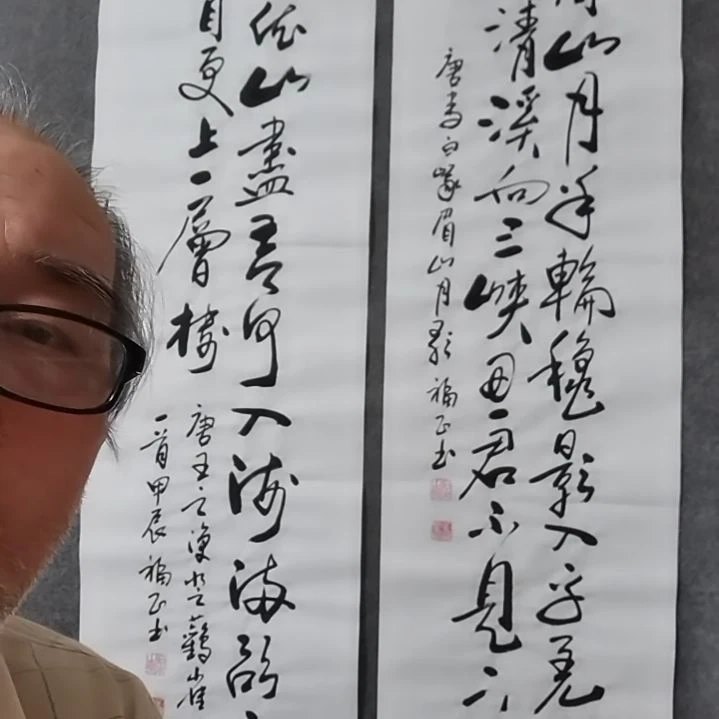 山月半輪穐影入平羌
清溪向三峽思君不見下
唐李白峨眉山月歌 福正书
依山盡黄河入海流欲
目更上一層樓
唐王之渙登鸛雀
一首甲辰 福正书